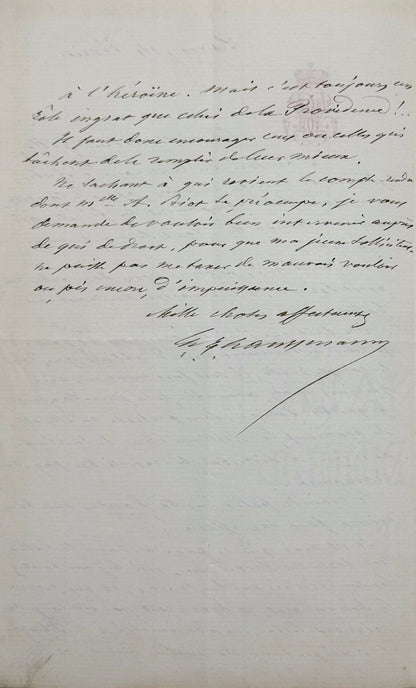 à l'héroïne. Mais c'est toujours un
rôle ingrat que celui de la Providence !..
Il faut donc encourager ceux ou celles qui
tâchent de le remplir de leur mieux.
Ne sachant à qui revient le compte rendu
dont Mlle A. Biot se préoccupe, je vous
demande de vouloir bien intervenir auprès
de qui de droit, pour que ma jeune solliciteuse
ne puisse pas me taxer de mauvais vouloir
ou, pis encore, d'impuissance.
Mille choses affectueuses
Haussmann